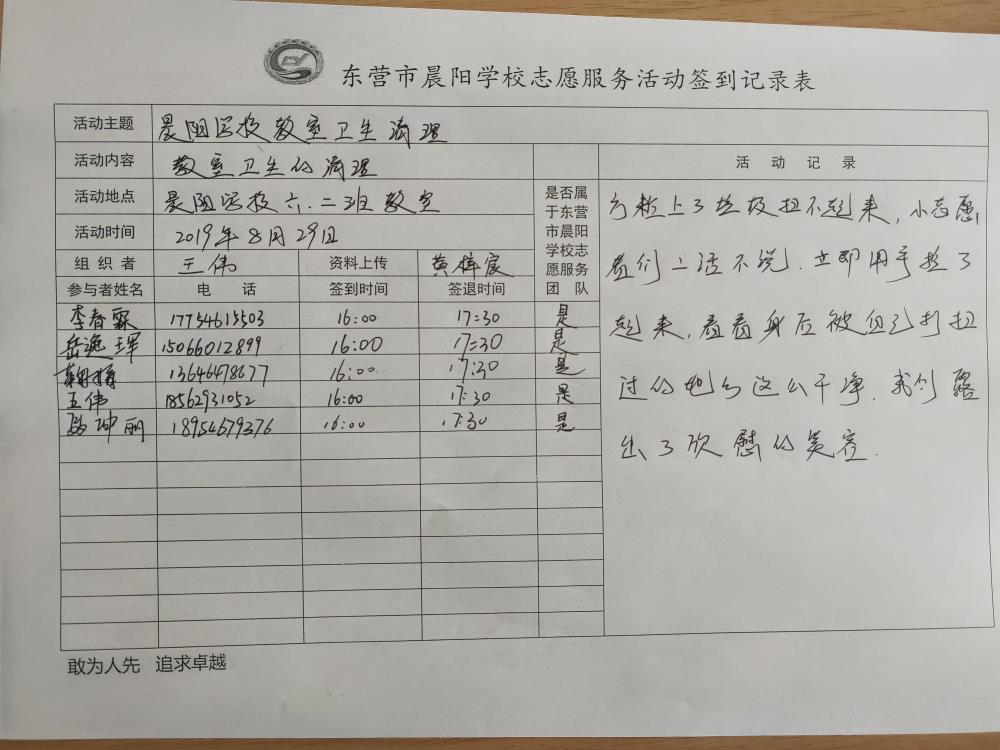 东营市晨阳学校志愿服务活动签到记录表
活动主题 晨阳学校教室卫生清理
活动内容 教室卫生的清理
活动地点 晨阳学校六.二班教室
活动时间 2019年8月29日
组织者 王伟 资料上传 黄梓宸
是否属于东营市晨阳学校志愿服务团队
参与者姓名 电话 签到时间 签退时间
李春霖 17754615503 16:00 17:30 是
岳逸珲 15066012899 16:00 17:30 是
13646478677 16:00 17:30 是
王伟 18562931052 16:00 17:30 是
坤丽 18954679376 16:00 17:30 是
活动记录
方粒上了垃圾扫不起来,小志愿
者们二话不说.立即用手捡了
起来,看着身后被自己打扫
过的地方这么干净.我们露
出了欣慰的笑容.
敢为人先 追求卓越